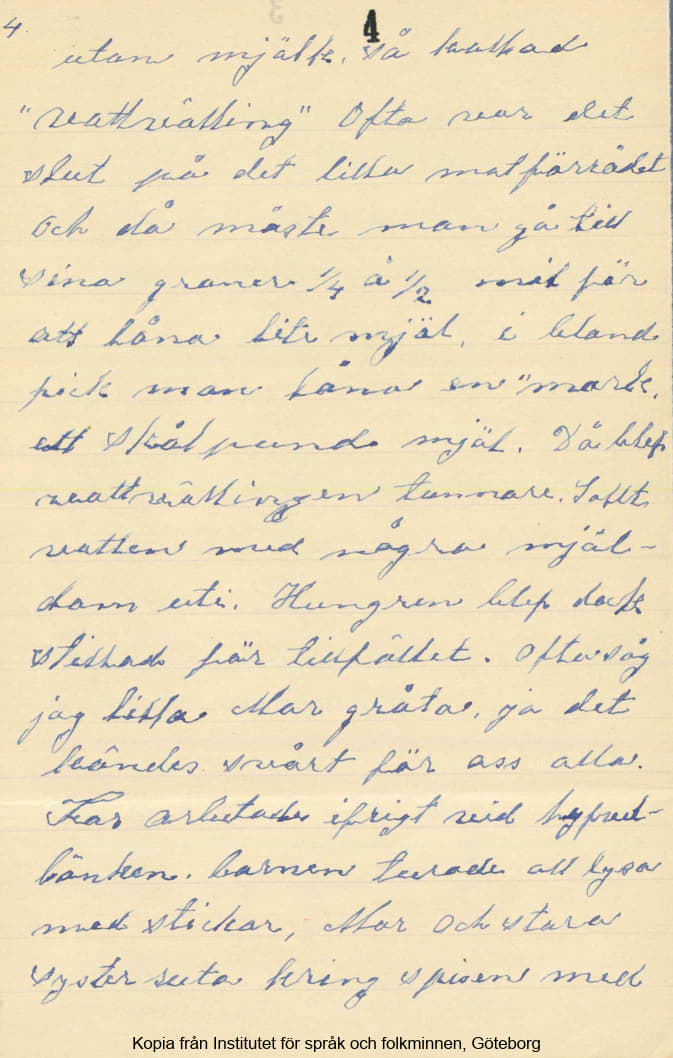 4. 4
utan mjölk, så kallad
"vattvälling" Ofta var det
slut på det lilla matförrådet
och då måste man gå till
sina graner 1/4 à 1/2 mil för
att låna lite mjöl, i bland
fick man låna en "mark,
ett skålpund mjöl. Då blef
vattvällingen tunnare. Salt
vatten med några mjöl-
dam uti. Hungren blef dock
stillad för tillfället. Ofta såg
jag lilla Mor gråta, ja det
kändes svårt för oss alla.
Far arbetade ifrigt vid hyfvel-
bänken. barnen turade att lysa
med stickor, Mor och stora
syster suto kring spisen med
Kopia från Institutet för språk och folkminnen, Göteborg